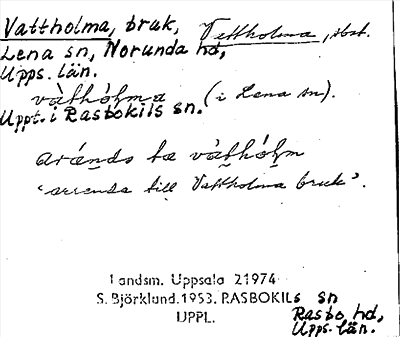 Vattholma, bruk, Vattholma, sbst.
Lena sn, Norunda hd,
Upps. län.
vàthólma (i Lena sn).
Uppt. i Rasbokils sn.
aränds ta vàthólm
"arrenda till Vattholma bruk".
Landsm. Uppsala 21974
S. Björklund. 1953. RASBOKILs sn
UPPL. Rasbo hd,
Upps. län.